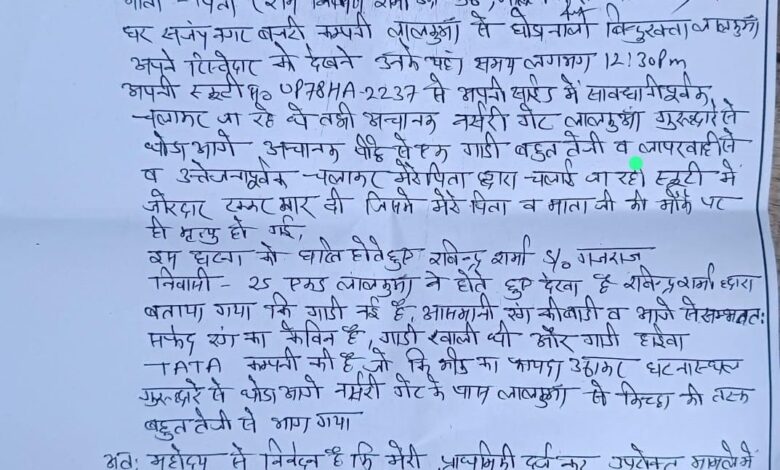 माता - पिता
घर संजय नगर बंगाली कम्पनी लालकुआँ से घोड़ानाला बिन्दुखत्ता लालकुआँ
अपने रिश्तेदार को देखने उनके यहां समय लगभग 12:30Pm
अपनी स्कूटी no UP78HA-2237 से अपनी साईड में सावधानीपूर्वक
चलाकर जा रहे थे तभी अचानक नर्सरी गेट लालकुआँ गुरुद्वारे से
थोडा आगे अचानक पीछे से एक गाडी बहुत तेजी व लापरवाही से
व उत्तेजनापूर्वक चलाकर मेरे पिता द्वारा चलाई जा रही स्कूटी में
जोरदार टक्कर मार दी जिसमे मेरे पिता व माता जी की मौके पर
ही मृत्यु हो गई,
इस घटना को घटित होते हुए रविन्द्र शर्मा S/o गजराज
निवासी - 25 एकड लालकुआँ ने होते हुए देखा है रविन्द्र शर्मा द्वारा
बताया गया कि गाडी नई है, आसमानी रंग की बाडी व आगे से सम्भवतः
सफेद रंग का केविन है, गाडी खाली थी और गाडी हाईवा
TATA कम्पनी की है जो कि भीड का फायदा उठाकर घटनास्थल
गुरुद्वारे से थोडा आगे नर्सरी गेट के पास लालकुआँ से किच्छा की तरफ
बहुत तेजी से भाग गया
अतः महोदय से निवेदन है कि मेरी प्राथमिकी दर्ज कर उपरोक्त मामले में